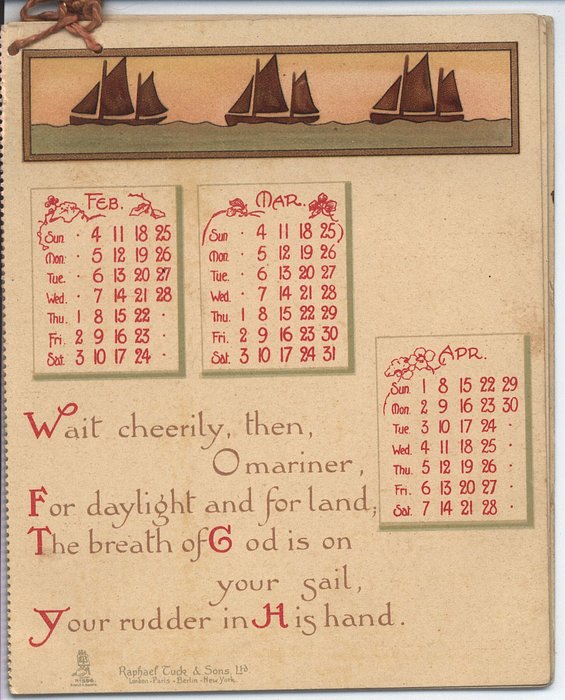 FEB.
Sun. · 4 11 18 25
Mon. · 5 12 19 26
Tue. · 6 13 20 27
Wed. · 7 14 21 28
Thu. 1 8 15 22 ·
Fri. 2 9 16 23 ·
Sat. 3 10 17 24 ·
MAR.
Sun. · 4 11 18 25
Mon. · 5 12 19 26
Tue. · 6 13 20 27
Wed. · 7 14 21 28
Thu. 1 8 15 22 29
Fri. 2 9 16 23 30
Sat. 3 10 17 24 31
APR.
Sun. 1 8 15 22 29
Mon. 2 9 16 23 30
Tue. 3 10 17 24 ·
Wed. 4 11 18 25 ·
Thu. 5 12 19 26 ·
Fri. 6 13 20 27 ·
Sat. 7 14 21 28 ·
Wait cheerily, then,
O mariner,
For daylight and for land;
The breath of God is on
your sail,
Your rudder in His hand.
Raphael Tuck & Sons, Ltd
London - Paris - Berlin - New York